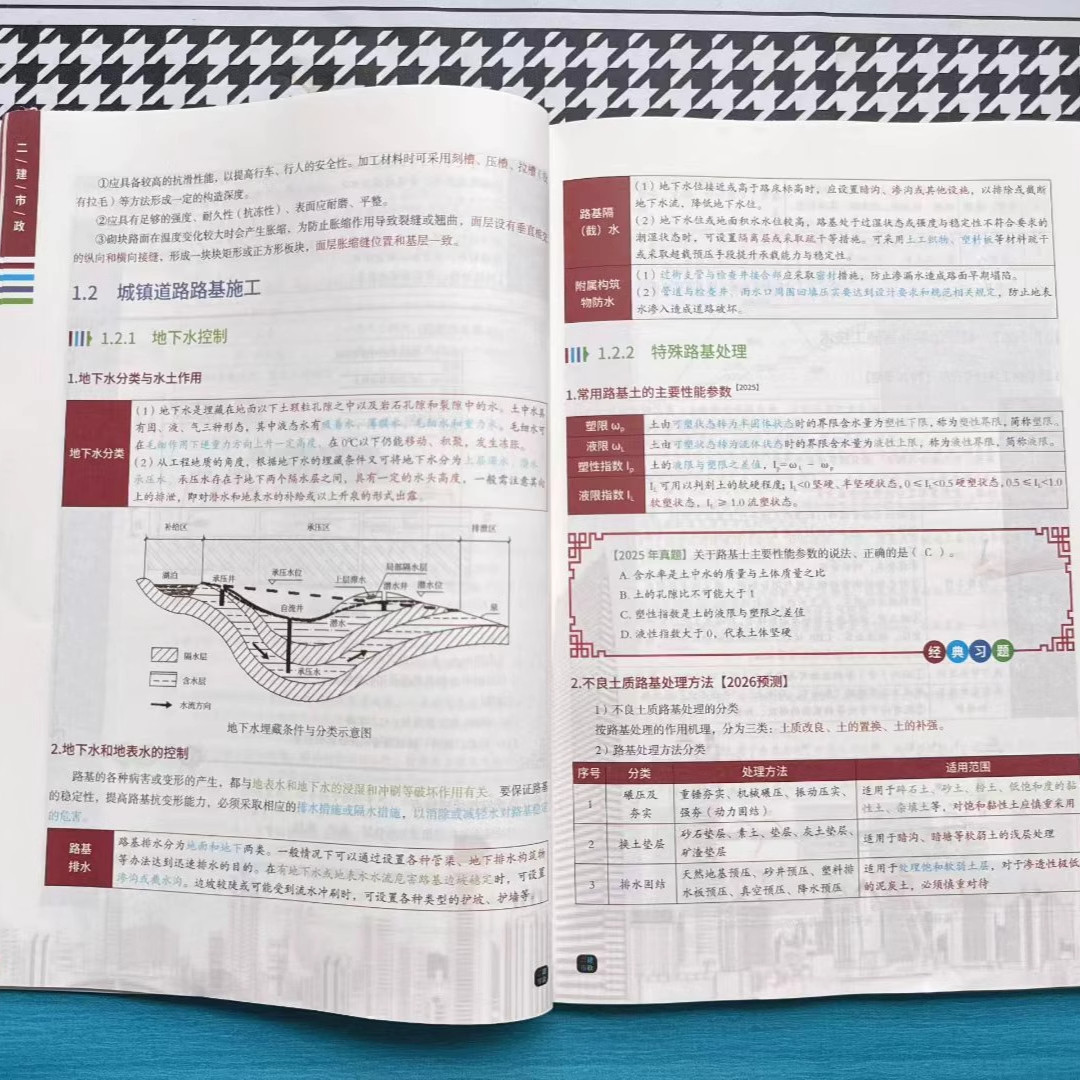 二/建/市/政
①应具备较高的抗滑性能，以提高行车、行人的安全性。加工材料时可采用刻槽、压槽、拉槽（
有拉毛）等方法形成一定的构造深度。
②应具有足够的强度、耐久性（抗冻性）、表面应耐磨、平整。
③砌块路面在温度变化较大时会产生胀缩，为防止胀缩作用导致裂缝或翘曲，面层设有垂直相交
的纵向和横向接缝，形成一块块矩形或正方形板块，面层胀缩缝位置和基层一致。
1.2 城镇道路路基施工
1.2.1 地下水控制
1.地下水分类与水土作用
地下水分类
（1）地下水是埋藏在地面以下土颗粒孔隙之中以及岩石孔隙和裂隙中的水。土中水具
有固、液、气三种形态，其中液态水有吸着水、薄膜水、毛细水和重力水。毛细水可
在毛细作用下逆重力方向上升一定高度，在0℃以下仍能移动、积聚，发生冻胀。
（2）从工程地质的角度，根据地下水的埋藏条件又可将地下水分为上层滞水、潜水、
承压水。承压水存在于地下两个隔水层之间，具有一定的水头高度，一般需注意其向
上的排泄，即对潜水和地表水的补给或以上升泉的形式出露。
补给区 承压区 排泄区
湖泊 承压井 承压水位 上层滞水 局部隔水层
潜水井 潜水位
自流井 泉
潜水
承压水
隔水层
含水层
水流方向
地下水埋藏条件与分类示意图
2.地下水和地表水的控制
路基的各种病害或变形的产生，都与地表水和地下水的浸湿和冲刷等破坏作用有关。要保证路基
的稳定性，提高路基抗变形能力，必须采取相应的排水措施或隔水措施，以消除或减轻水对路基稳定
的危害。
路基
排水
路基排水分为地面和地下两类。一般情况下可以通过设置各种管渠、地下排水构筑物
等办法达到迅速排水的目的。在有地下水或地表水水流危害路基边坡稳定时，可设置
渗沟或截水沟。边坡较陡或可能受到流水冲刷时，可设置各种类型的护坡、护墙等。
路基隔
（截）水
（1）地下水位接近或高于路床标高时，应设置暗沟、渗沟或其他设施，以排除或截断
地下水流，降低地下水位。
（2）地下水位或地面积水水位较高，路基处于过湿状态或强度与稳定性不符合要求的
潮湿状态时，可设置隔离层或采取疏干等措施。可采用土工织物、塑料板等材料疏干
或采取超载预压手段提升承载能力与稳定性。
附属构筑
物防水
（1）过街支管与检查井接合部应采取密封措施，防止渗漏水造成路面早期塌陷。
（2）管道与检查井、雨水口周围回填压实要达到设计要求和规范相关规定，防止地表
水渗入造成道路破坏。
1.2.2 特殊路基处理
1.常用路基土的主要性能参数【2025】
塑限 ωp 土由可塑状态转为半固体状态时的界限含水量为塑性下限，称为塑性界限，简称塑限。
液限 ωL 土由可塑状态转为流体状态时的界限含水量为液性上限，称为液性界限，简称液限。
塑性指数 Ip 土的液限与塑限之差值，Ip=ωL－ωp
液限指数 IL
IL可用以判别土的软硬程度；IL<0坚硬、半坚硬状态，0≤IL<0.5硬塑状态，0.5≤IL<1.0
软塑状态，IL≥1.0流塑状态。
【2025年真题】关于路基土主要性能参数的说法，正确的是（ C ）。
A. 含水率是土中水的质量与土体质量之比
B. 土的孔隙比不可能大于1
C. 塑性指数是土的液限与塑限之差值
D. 液性指数大于0，代表土体坚硬
经典习题
2.不良土质路基处理方法【2026预测】
1）不良土质路基处理的分类
按路基处理的作用机理，分为三类：土质改良、土的置换、土的补强。
2）路基处理方法分类
序号 分类 处理方法 适用范围
1 碾压及
夯实
重锤夯实、机械碾压、振动压实、
强夯（动力固结）
适用于碎石土、砂土、粉土、低饱和度的黏
性土、杂填土等，对饱和黏性土应慎重采用
2 换土垫层
砂石垫层、素土、垫层、灰土垫层、
矿渣垫层
适用于暗沟、暗塘等软弱土的浅层处理
3 排水固结
天然地基预压、砂井预压、塑料排
水板预压、真空预压、降水预压
适用于处理饱和软弱土层，对于渗透性极低
的泥炭土，必须慎重对待